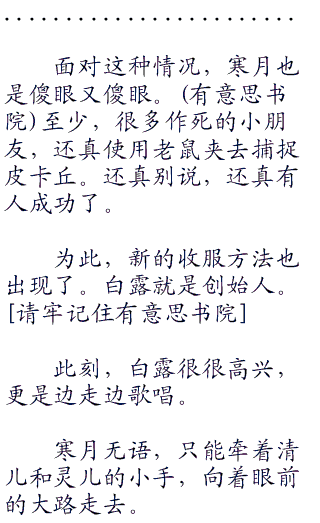 .........................
面对这种情况，寒月也
是傻眼又傻眼。(有意思书
院)至少，很多作死的小朋
友，还真使用老鼠夹去捕捉
皮卡丘。还真别说，还真有
人成功了。
为此，新的收服方法也
出现了。白露就是创始人。
[请牢记住有意思书院]
此刻，白露很很高兴，
更是边走边歌唱。
寒月无语，只能牵着清
儿和灵儿的小手，向着眼前
的大路走去。